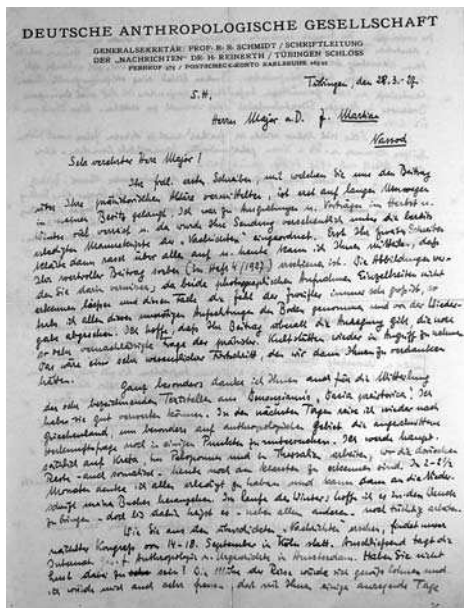 DEUTSCHE ANTHROPOLOGISCHE GESELLSCHAFT
GENERALSEKRETÄR: PROF. R. R. SCHMIDT / SCHRIFTLEITUNG
DER „NACHRICHTEN" DR. H. REINERTH / TÜBINGEN SCHLOSS
POSTSCHECK-KONTO KARLSRUHE
Tübingen, den 28.3.
S.H.
Herrn Major a.D. J. Martian
Nassod
Sehr verehrter Herr Major!
Ihr frdl. erstes Schreiben, mit welchem Sie uns den Beitrag
über Ihre prähistorischen vermittelten, ist erst auf langen Umwegen
in meinen Besitz gelangt. Ich war zu Ausgrabungen u. Vorträgen im Herbst u.
Winter viel verreist u. da wurde Ihre Sendung versehentlich unter die bereits
erledigten Manuskripte der „Nachrichten" eingeordnet. Erst Ihr zweites Schreiben
klärte dann rasch über alles auf u. heute kann ich Ihnen mitteilen, daß
Ihr wertvoller Beitrag soeben (in Heft 4/1927) erschienen ist. Die Abbildungen wer-
den Sie darin vermissen, da beide photographischen Aufnahmen Einzelheiten nicht
erkennen lassen und in diesem Falle die Zahl der Zweifler immer sehr groß ist, so
habe ich allen unnötigen den Boden genommen und von der Wieder-
gabe abgesehen. Ich hoffe, daß Ihr Beitrag überall die Anregung gibt, die
so sehr vernachlässigte Frage der prähistor. Kultstätten wieder in Angriff zu nehmen.
Das wäre ein sehr wesentlicher Fortschritt, den wir dann Ihnen zu verdanken
hätten.
Ganz besonders danke ich Ihnen auch für die Mitteilung
der sehr bezeichnenden Textstelle aus „Dacia " Ich
habe sie gut verwerten können. In den nächsten Tagen reise ich wieder nach
Griechenland, um besonders auf anthropologischem Gebiet die angeschnittene
Herkunftsfrage noch in einigen Punkten zu untersuchen. Ich werde haupt-
sächlich auf Kreta, im Peloponnes und in Thessalien arbeiten, wo die dorischen
Reste - auch somatisch - heute noch am klarsten zu erkennen sind. In 2-2½
Monaten denke ich alles erledigt zu haben und kann dann an die Nieder-
schrift meines Buches herangehen. Im Laufe des Winters hoffe ich es in den Druck
zu bringen - doch bis dahin heißt es - neben allem anderen - noch tüchtig arbeiten.
Wie Sie aus den „Nachrichten" ersehen, findet unser
nächster Kongreß vom 14-18. September in Köln statt. Anschließend tagt die
Internat. f. Anthropologie u. Urgeschichte in Amsterdam. Haben Sie nicht
Lust dabei zu sein? Die Mühe der Reise würde sich gewiß lohnen und
ich würde mich auch sehr freuen dort mit Ihnen einige anregende Tage